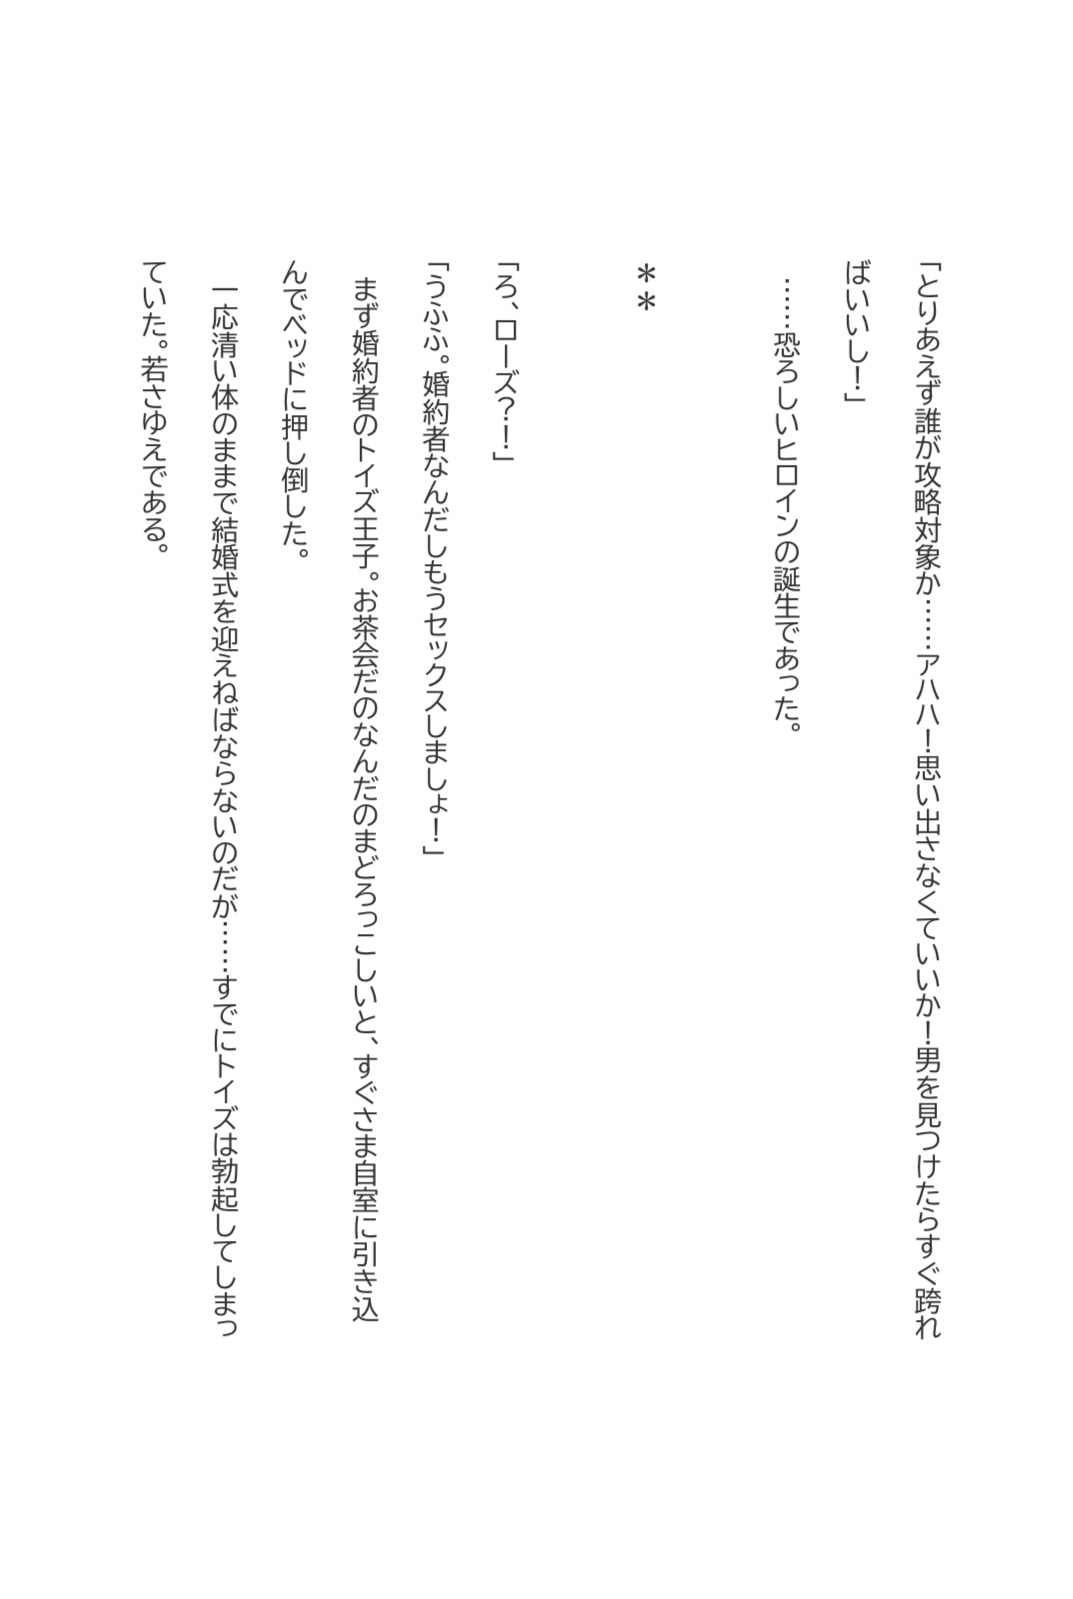 「とりあえず誰が攻略対象か……アハハ！思い出さなくていいか！男を見つけたらすぐ跨れ
ばいいし！」
……恐ろしいヒロインの誕生であった。
＊＊
「ろ、ローズ？！」
「うふふ。婚約者なんだしもうセックスしましょ！」
まず婚約者のトイズ王子。お茶会だのなんだのまどろっこしいと、すぐさま自室に引き込
んでベッドに押し倒した。
一応清い体のままで結婚式を迎えねばならないのだが……すでにトイズは勃起してしまっ
ていた。若さゆえである。